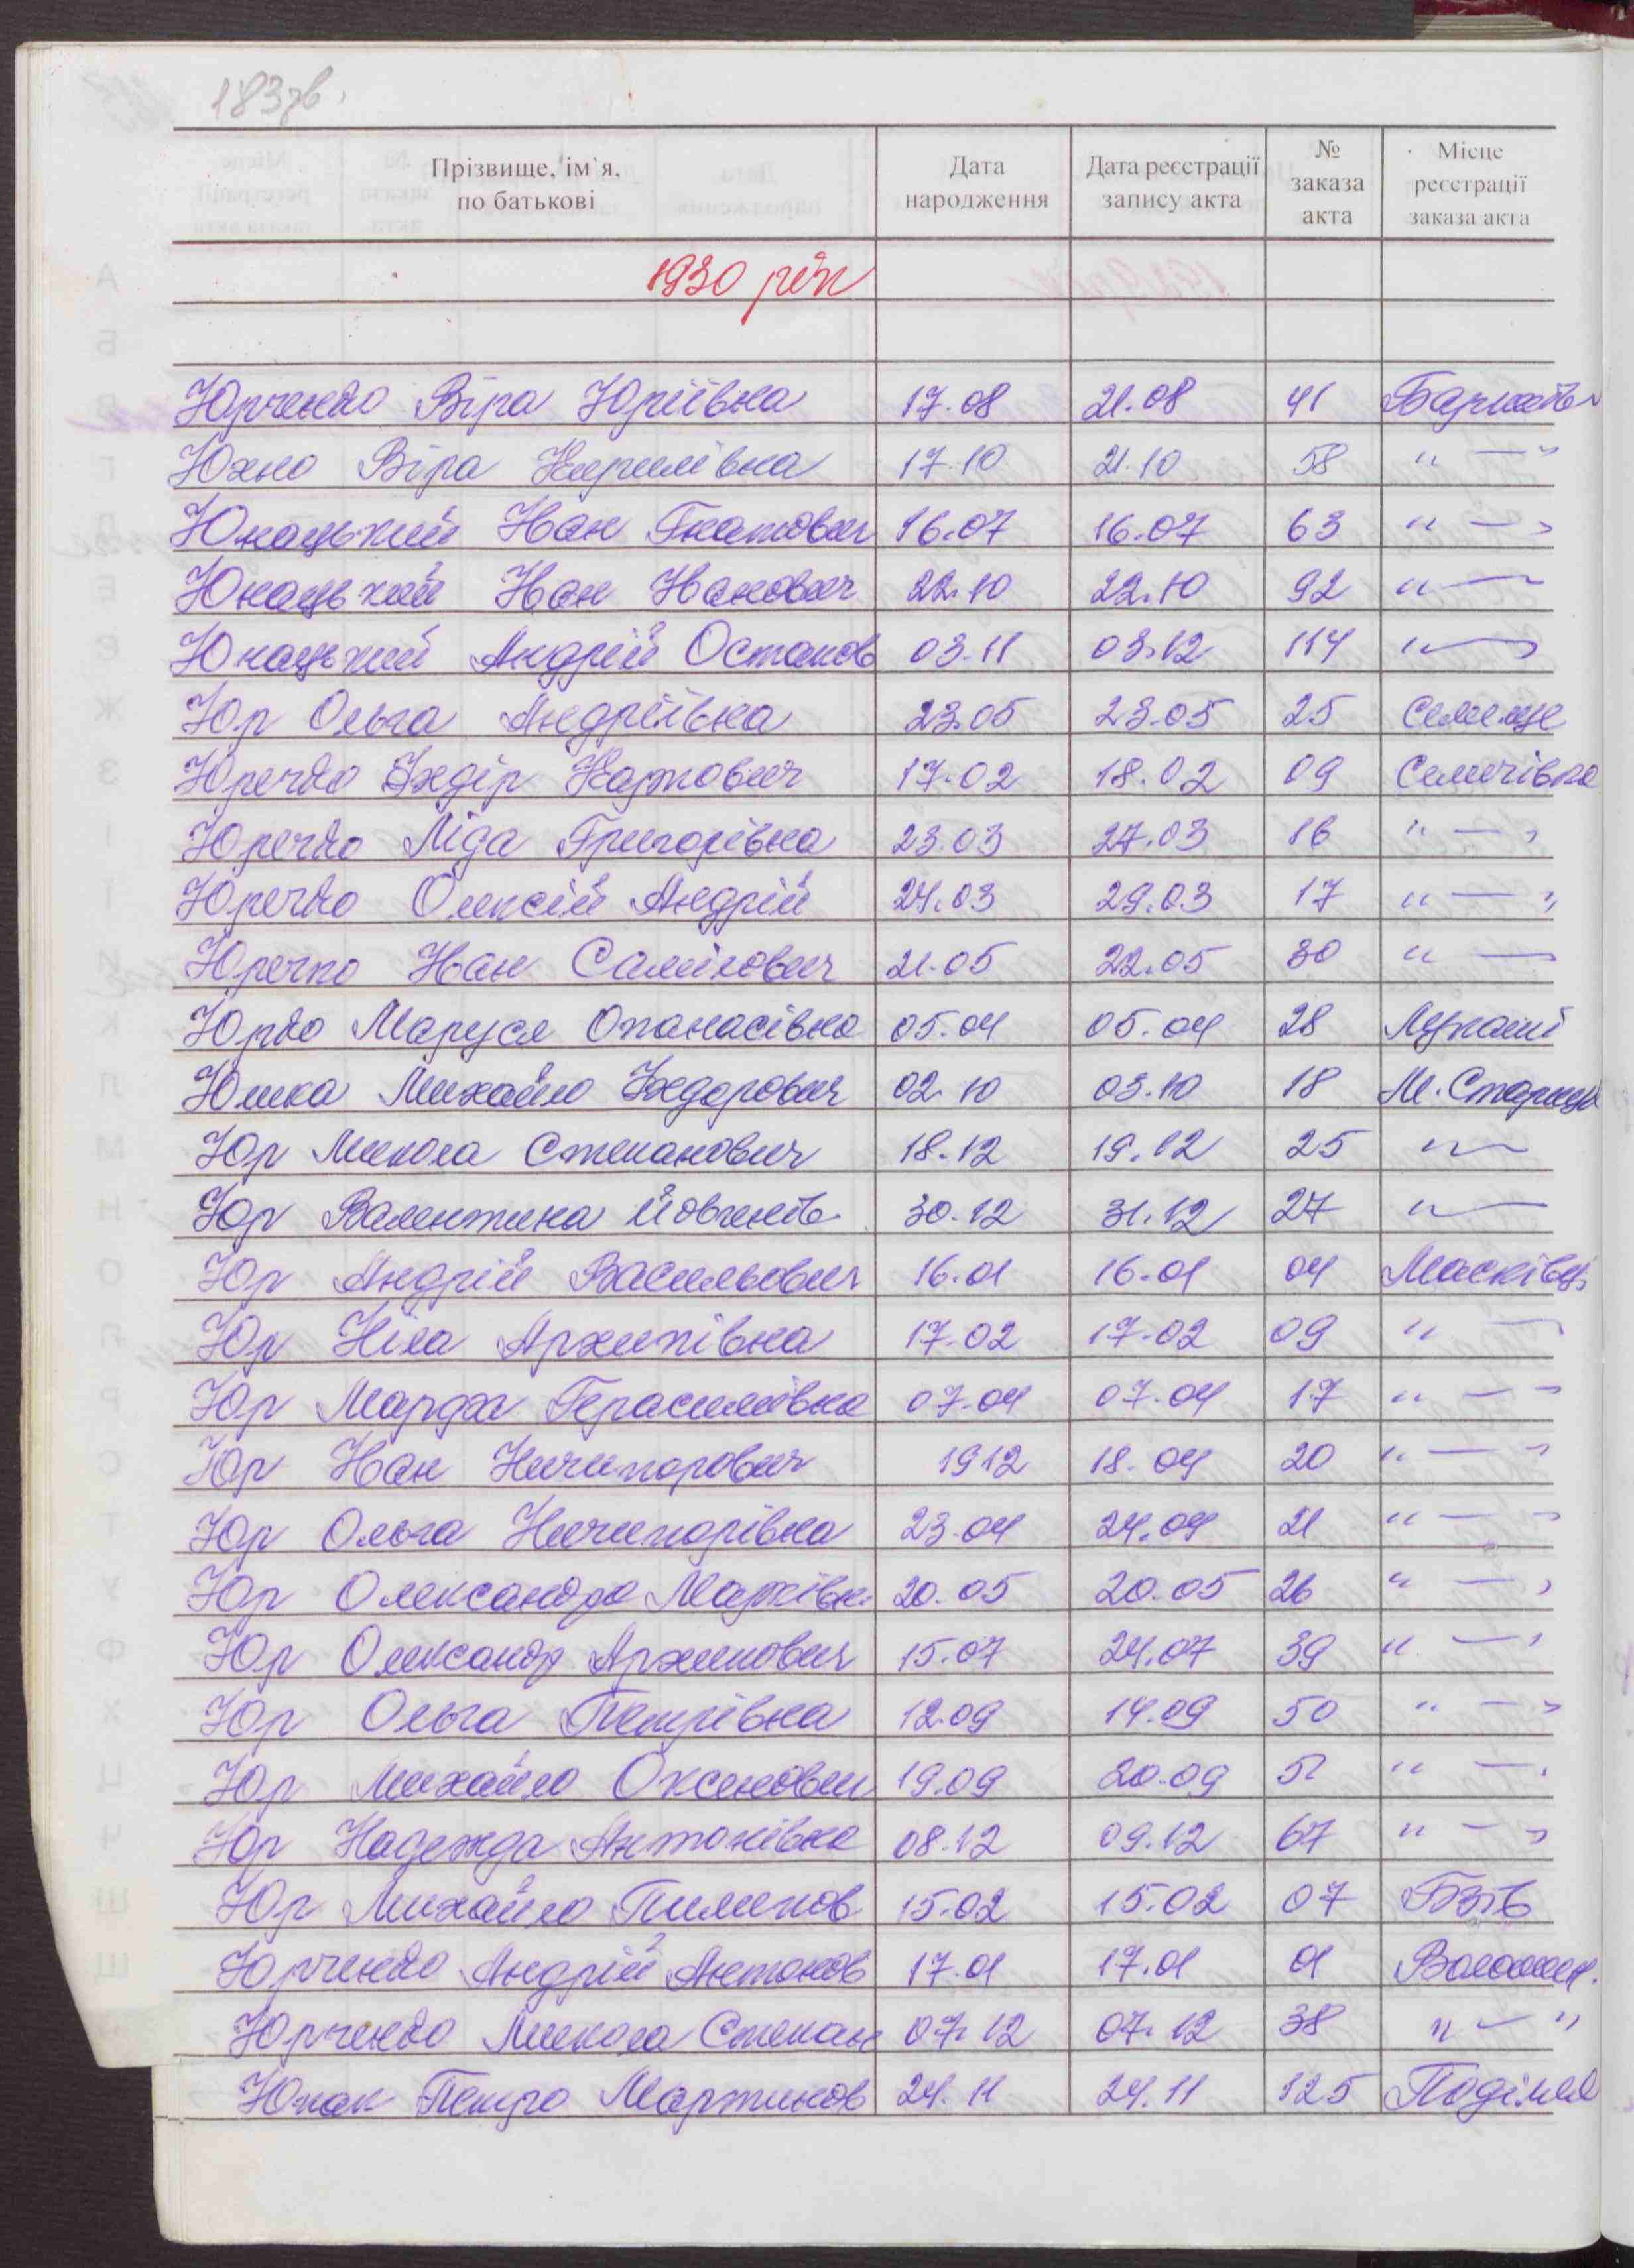 183 зв.
Прізвище, ім`я, по батькові | Дата народження | Дата реєстрації запису акта | № заказа акта | Місце реєстрації заказа акта
1930 рік
Юрченко Віра Юріївна 17.08 21.08 41
Юхно Віра Кирилівна 17.10 21.10 58 " — "
Юнацький Іван Гнатович 16.07 16.07 63 " — "
Юнацький Іван Іванович 22.10 22.10 92 " —
Юнацький Андрій Остапов 03.11 03.12 114 " — "
Юр Ольга Андріївна 23.05 23.05 25
Юречко Хведір Карпович 17.02 18.02 09 Сеничівка
Юречко Ліда Григорівна 23.03 27.03 16 " — "
Юречко Олексій Андрій 24.03 29.03 17 " — "
Юречко Іван Самійлович 21.05 22.05 30 " —
Юрко Маруся Опанасівна 05.04 05.04 28 Лукаші
Юшка Михайло Хведорович 02.10 03.10 18 М. Стариця
Юр Микола Степанович 18.12 19.12 25 " —
Юр Валентина 30.12 31.12 27 " —
Юр Андрій Васильович 16.01 16.01 04 Масківці
Юр Ніна Архипівна 17.02 17.02 09 " —
Юр Марфа Герасимівна 07.04 07.04 17 " — "
Юр Іван Ничипорович 1912 18.04 20 " — "
Юр Ольга Ничипорівна 23.04 24.04 21 " — "
Юр Олександра Марківн. 20.05 20.05 26 " — "
Юр Олександр Архипович 15.07 24.07 39 " — "
Юр Ольга Петрівна 12.09 14.09 50 " — "
Юр Михайло Оксенович 19.09 20.09 51 " — "
Юр Надежда Антонівна 08.12 09.12 67 " — "
Юр Михайло Пименов 15.02 15.02 07 Бзів
Юрченко Андрій Антонов 17.01 17.01 01
Юрченко Микола Степан 07.12 07.12 38 " — "
Юпак Петро Мартинов 24.11 24.11 125 Поділля